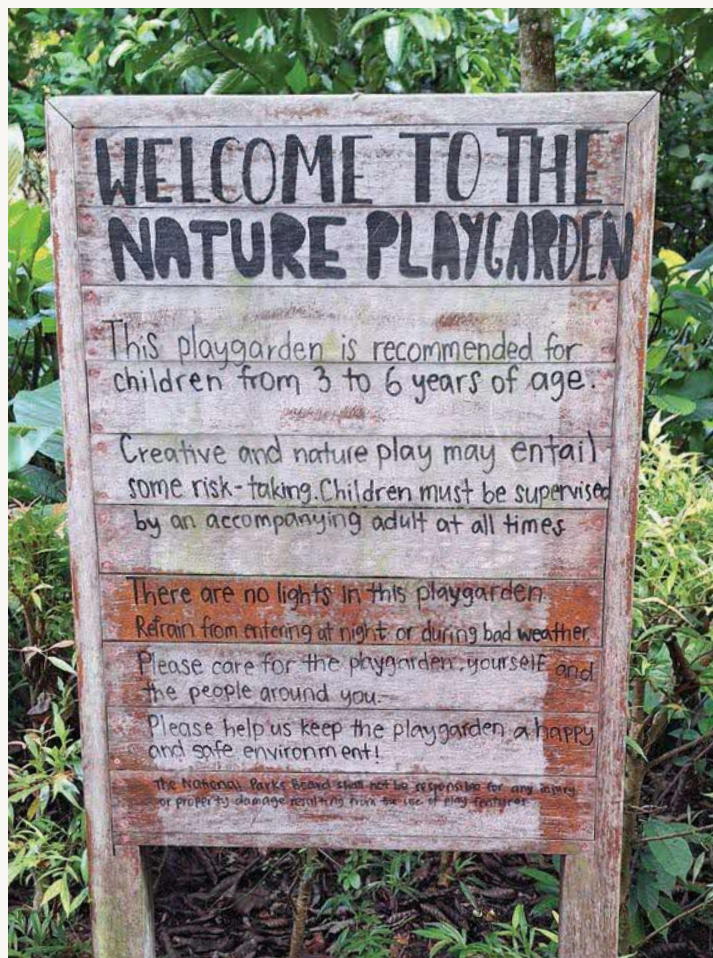 WELCOME TO THE
NATURE PLAYGARDEN
This playgarden is recommended for
children from 3 to 6 years of age.
Creative and nature play may entail
some risk-taking. Children must be supervised
by an accompanying adult at all times
There are no lights in this playgarden.
Refrain from entering at night or during bad weather.
Please care for the playgarden, yourself and
the people around you.
Please help us keep the playgarden a happy
and safe environment!
The National Parks Board shall not be responsible for any injury
or property damage resulting from the use of play features